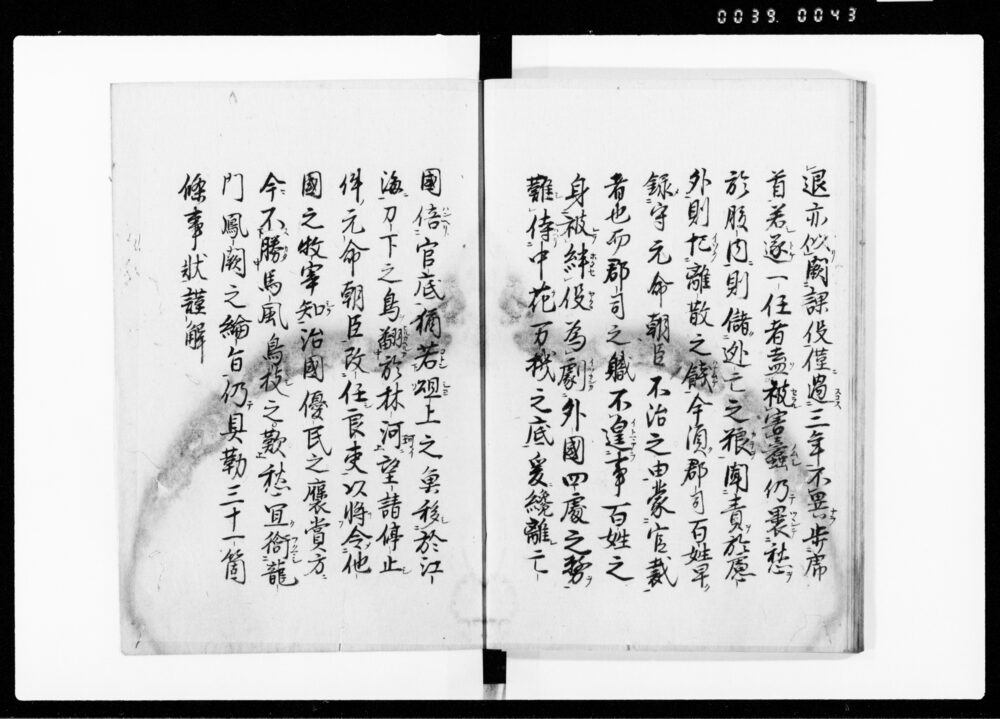 0039. 0043
退亦似闕課役僅過三年不異歩席
首若遂一任者盍被害蠹仍畳愁
於腹内則儲逃亡之粮聞責於慮
外則忙離散之餞今須郡司百姓早
録守元命朝臣不治之由蒙官裁
者也而郡司之職不遑事百姓之
身被絆役為劇外國四度之務
難侍中花万機之底爰纔離亡
國倍官底猶若俎上之魚移於江
海刀下之鳥翻於林河望請停止
件元命朝臣改任良吏以将令他
國之牧宰知治國優民之褒賞方
今不勝馬風鳥枝之歎愁宜銜龍
門鳳闕之綸旨仍具勒三十一箇
條事状謹解